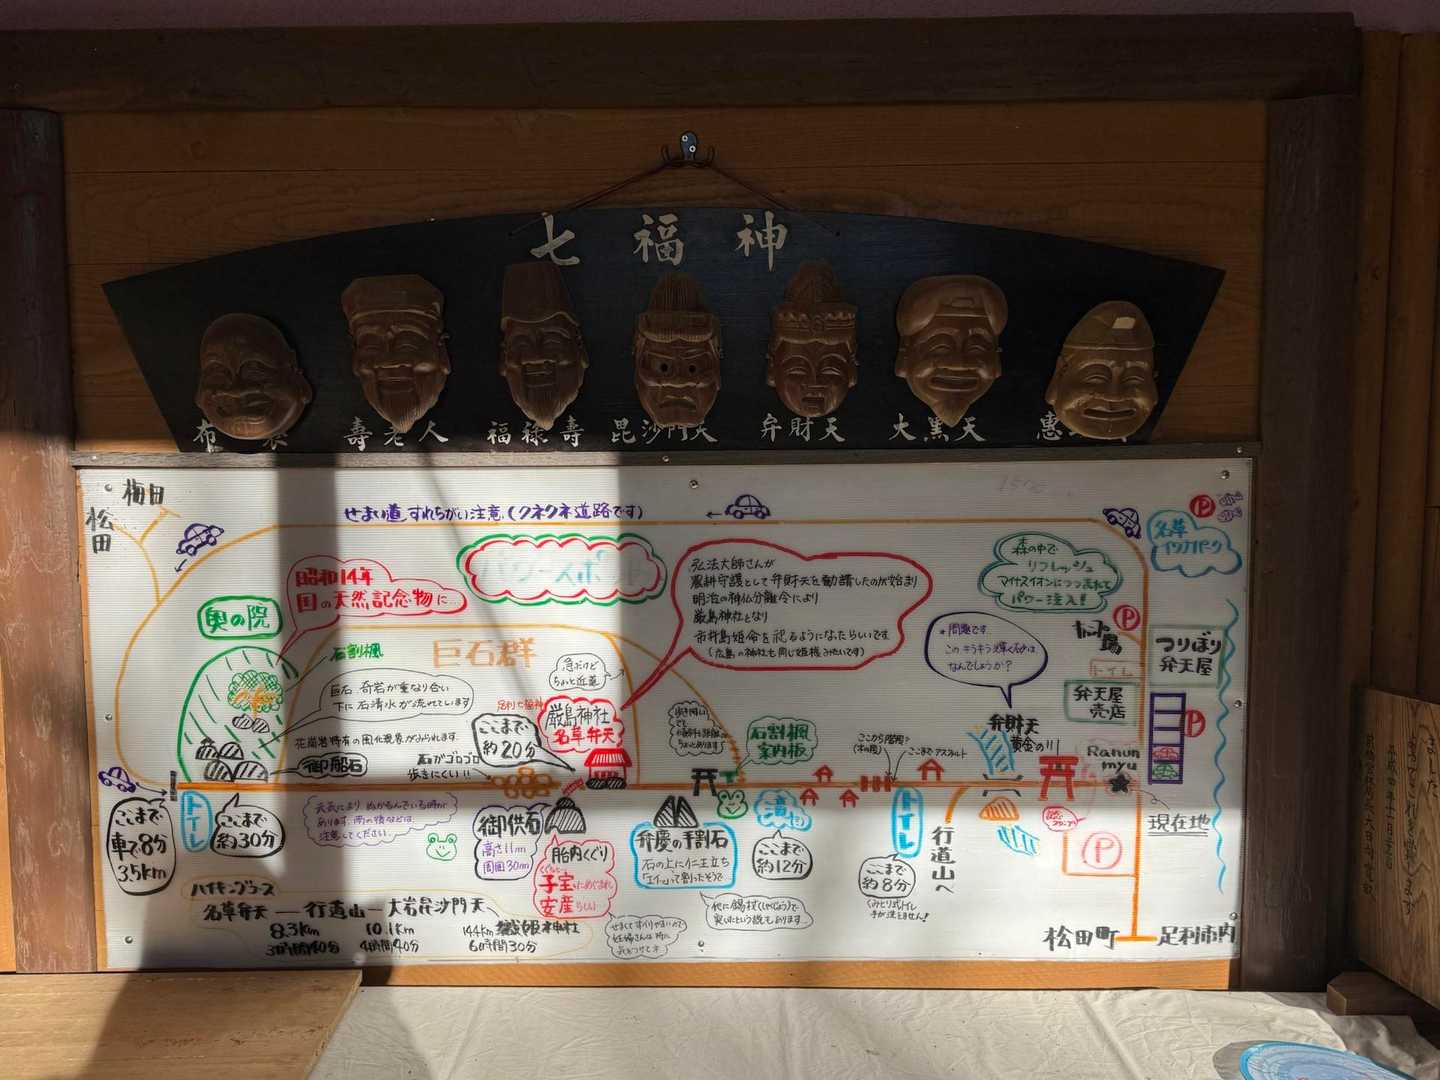 七福神
布
壽老人
福禄壽
毘沙門天
弁財天
大黒天
惠
梅田
松田
せまい道、すれちがい注意、(クネクネ道路です)
P
名草
昭和14年
国の天然記念物に…
パワースポット
弘法大師さんが
農耕守護として弁財天を勧請したのが始まり
明治の神仏分離令により
厳島神社となり
市杵島姫命を祀るようになったらしいです
(広島の神社も同じ姫様みたいです)
森の中で
リフレッシュ
パワー注入!!
奥の院
石割楓
巨石群
急だけど
ちょっと近道
問題です
このキラキラ輝く石は
なんでしょうか?
P
トイレ
つりぼり
弁天屋
弁天屋
売店
P
巨石、奇岩が重なり合い
下に石清水が流れています
花崗岩特有の風化現象がみられます
御船石
石がゴロゴロ
歩きにくい!!
ここまで
約20分
厳島神社
名草弁天
石割楓
案内板
ここから階段?
ここまでアスファルト
弁財天
黄金の!!
現在地
ここまで
車で8分
3.5km
トイレ
ここまで
約30分
注意してください
御供石
高さ11m
周囲30m
胎内くぐり
子宝にめぐまれ
安産らしい
弁慶の手割石
石の上に仁王立ち
「エイッ」って割ったそうで
ここまで
約12分
トイレ
ここまで
約8分
くみとり式トイレ
手が洗えません!
行道山へ
P
ハイキングコース
名草弁天 ― 行道山 ― 大岩毘沙門天
織姫神社
8.3km
10.1km
14.4km
3時間40分
4時間40分
6時間30分
松田町
足利市内